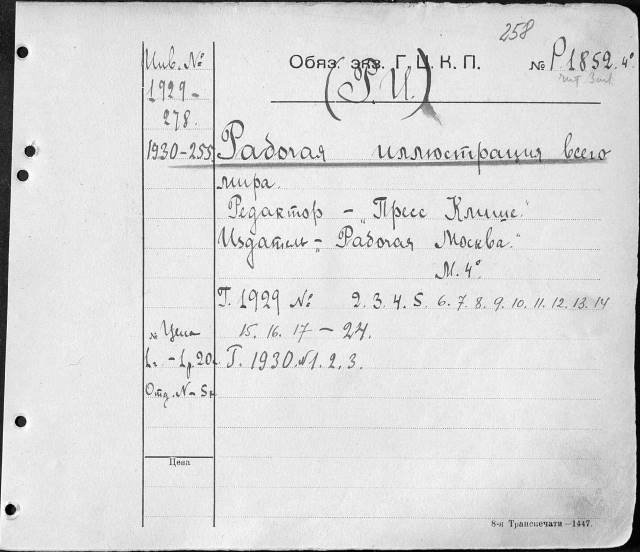 258
Инв. №
1929-
278.
1930-255
Обяз. экз. Г. Ц. К. П.
(Р. И.)
№ Р.1852. 4°
Рабочая иллюстрация всего
мира.
Редактор - "Пресс Клише."
Издатель - "Рабочая Москва."
М. 4°.
Г. 1929 №: 2. 3. 4. 5. 6. 7. 8. 9. 10. 11. 12. 13. 14
15. 16. 17 - 24.
Г. 1930. №1. 2. 3.
№ Цена
1г. - 1р. 20к
Отд. № - 5к
Цена
8-я Транспечати—1447.